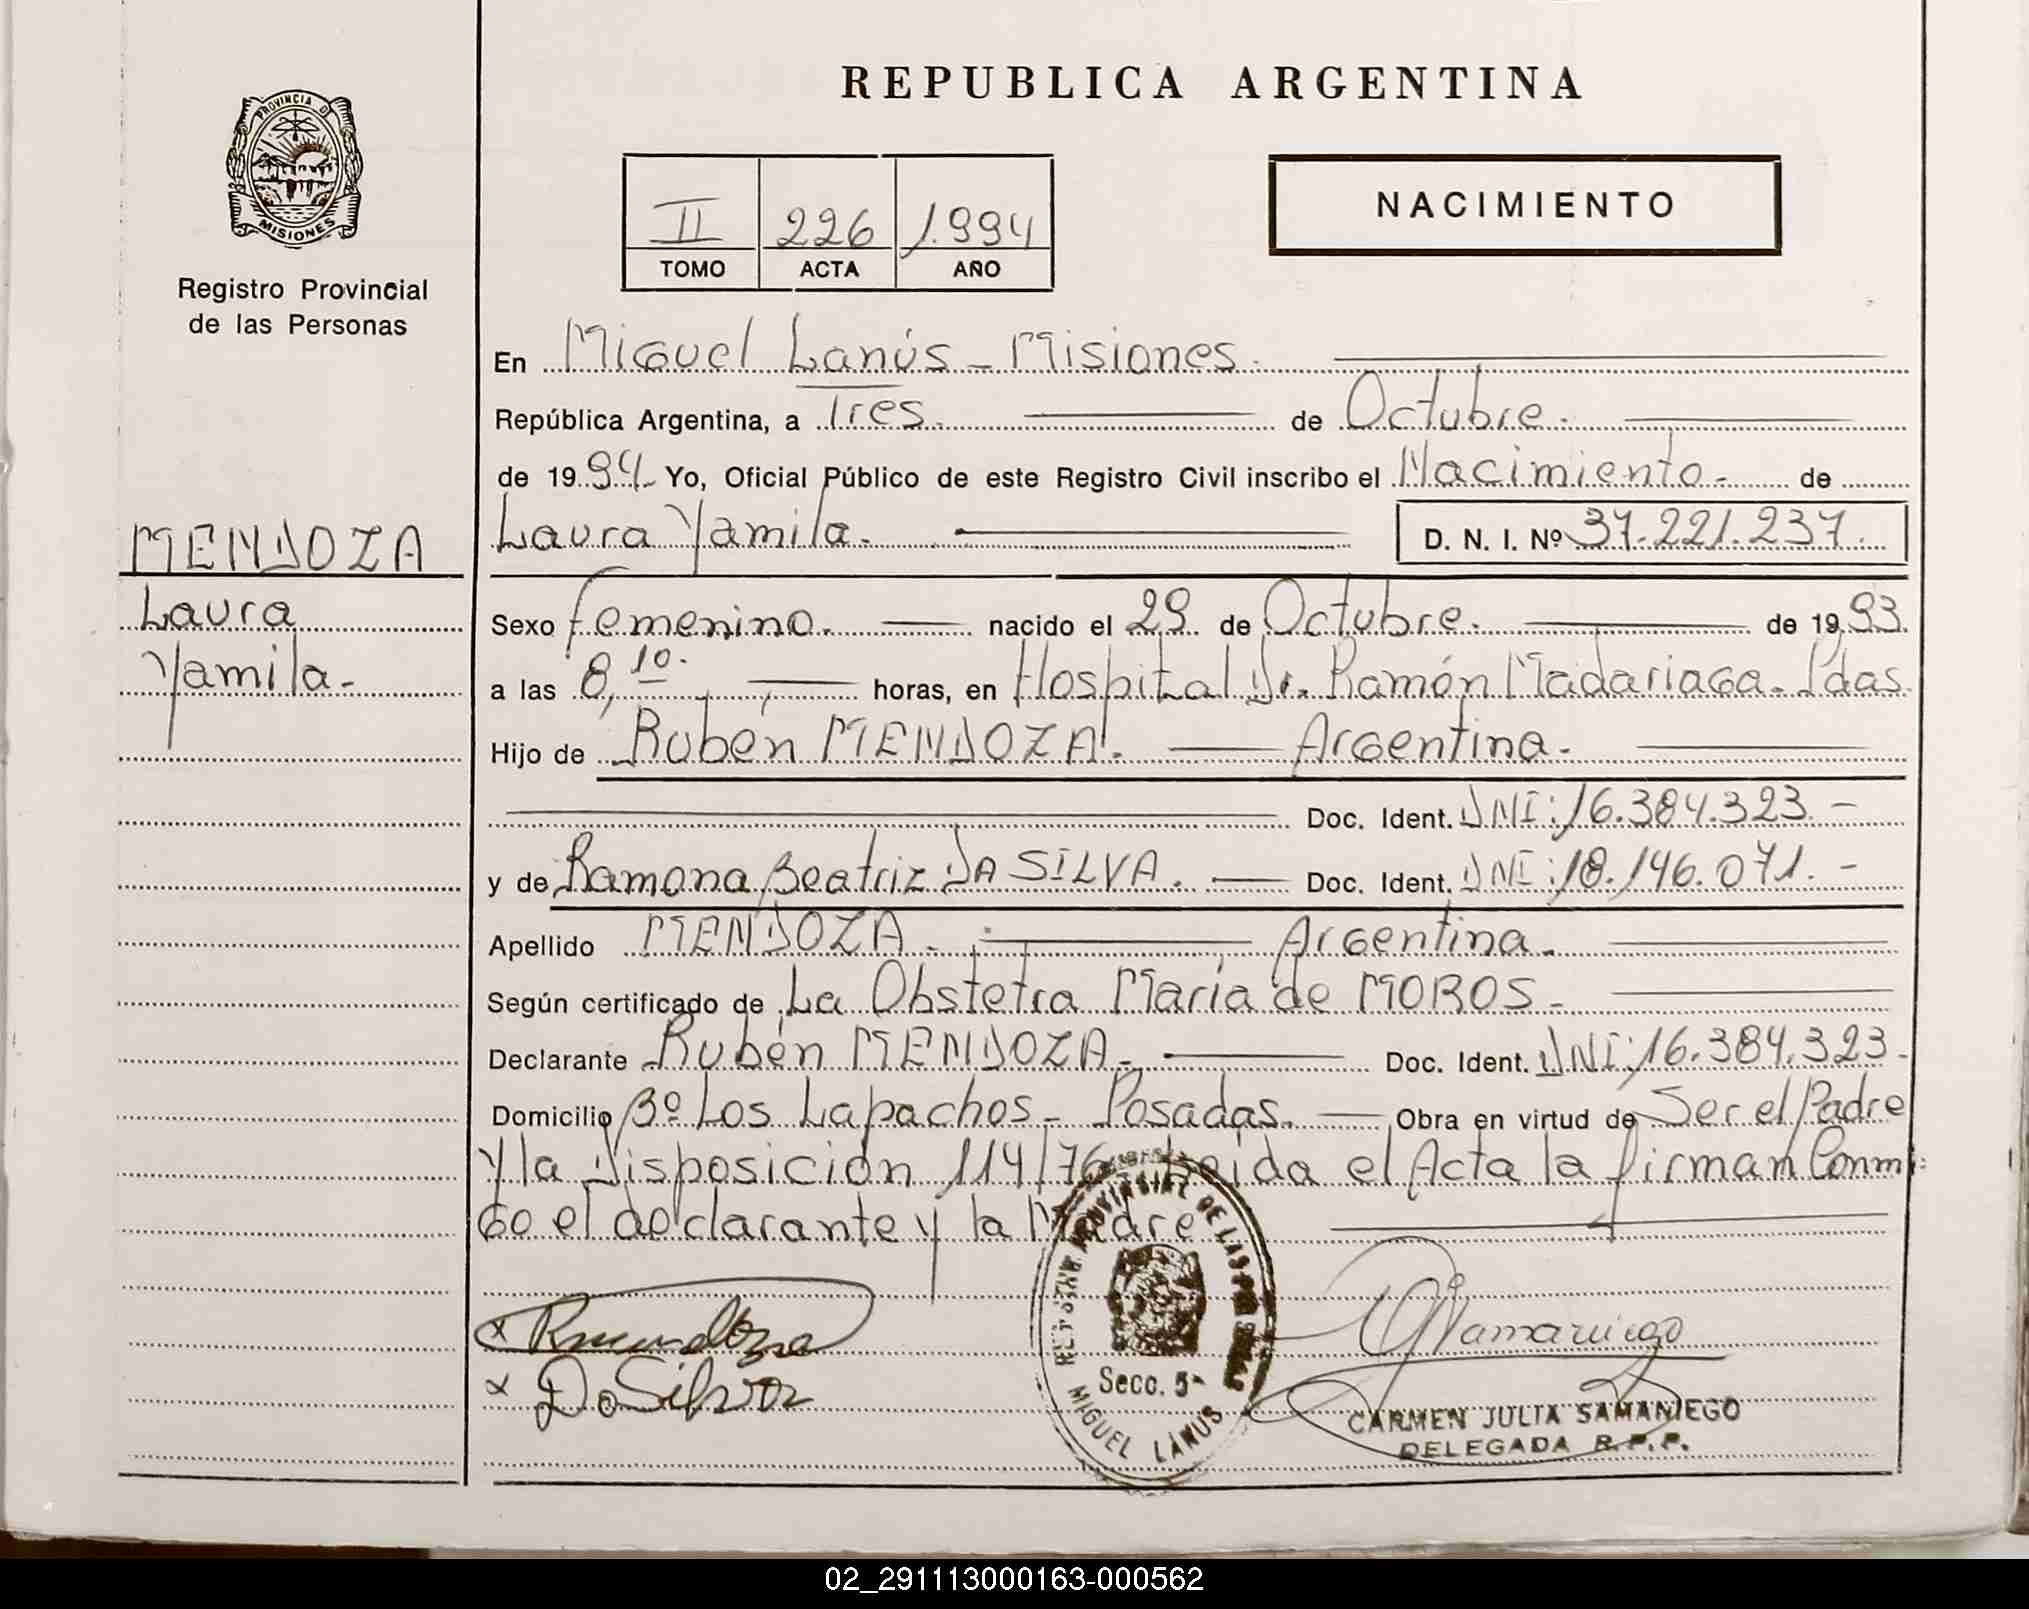 REPUBLICA ARGENTINA
PROVINCIA D
MISIONES
Registro Provincial
de las Personas
II 226 1.994
TOMO ACTA AÑO
NACIMIENTO
En Miguel Lanús - Misiones.
República Argentina, a Tres. de Octubre.
de 1994. Yo, Oficial Público de este Registro Civil inscribo el Nacimiento - de
Laura Yamila. D. N. I. Nº 37.221.237.
MENDOZA
Laura
Yamila.-
Sexo femenino. nacido el 29 de Octubre. de 1993.
a las 8,10. horas, en Hospital Dr. Ramón Madariaga. Pdas.
Hijo de Rubén MENDOZA. Argentina.
Doc. Ident. DNI: 16.384.323.-
y de Ramona Beatriz DA SILVA. Doc. Ident. DNI: 18.146.071.-
Apellido MENDOZA. Argentina.
Según certificado de La Obstetra María de MOROS.
Declarante Rubén MENDOZA. Doc. Ident. DNI: 16.384.323.
Domicilio Bº Los Lapachos - Posadas. Obra en virtud de Ser el Padre
y la Disposición 114/76 Leida el Acta la firman Conmi-
go el declarante y la Madre
x RMendoza
x Da Silva
Secc. 5ª
MIGUEL LANUS
CARMEN JULIA SAMANIEGO
DELEGADA R.P.P.
02_291113000163-000562